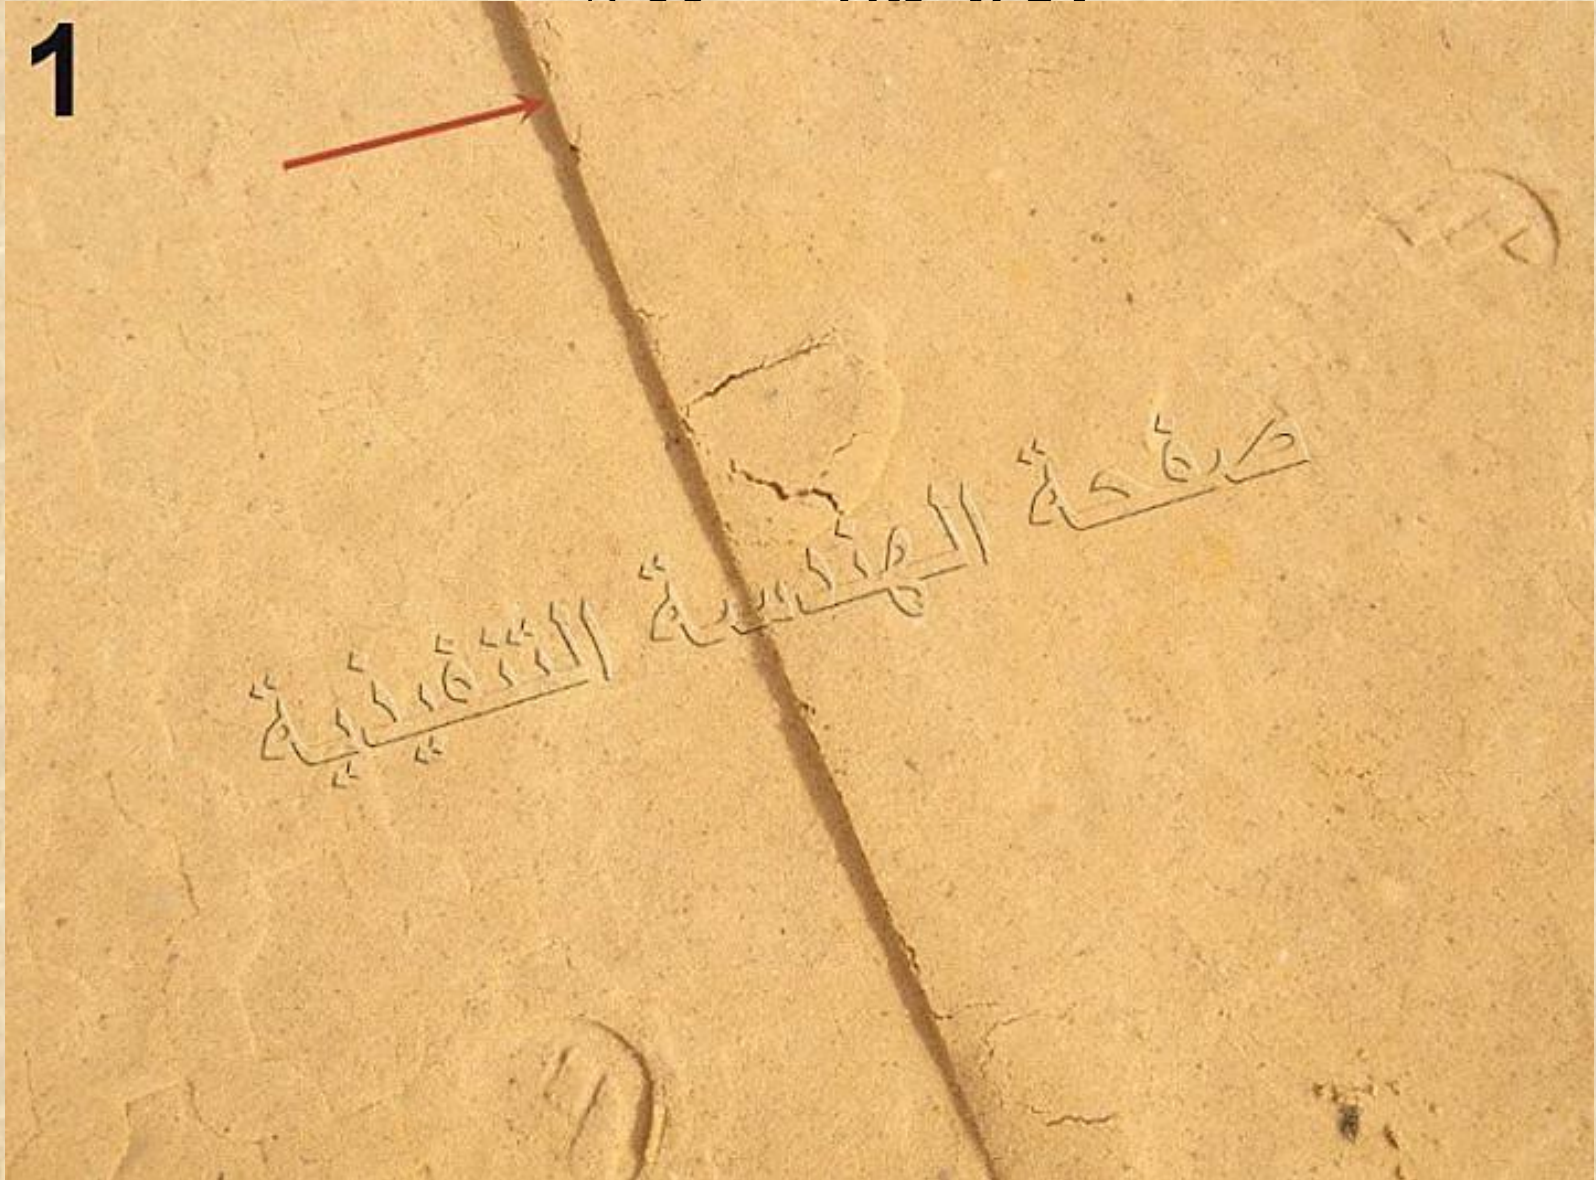 1
صفحة الهندسة التنفيذية